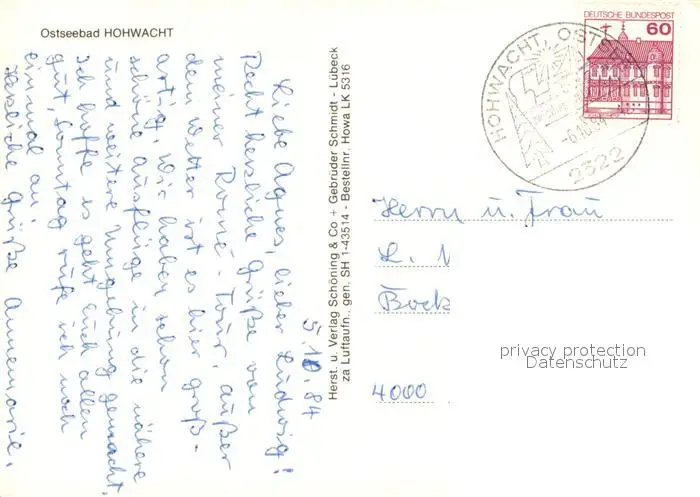 Ostseebad HOHWACHT
5.10.84
Liebe Agnes, lieber Ludwig!
Recht herzliche Grüße von
meiner Rouné-Tour, außer
dem Wetter ist es hier groß-
artig. Wir haben schon
schöne Ausflüge in die nähere
und weitere Umgebung gemacht.
Ich hoffe es geht Euch allen
gut, Sonntag rufe ich noch
einmal an.
Herzliche Grüße Annemarie.
Herst. u. Verlag Schöning & Co + Gebrüder Schmidt - Lübeck
za Luftaufn., gen. SH 1-43514 - Bestellnr. Howa LK 5316
DEUTSCHE BUNDESPOST
60
HOHWACHT, OSTSEE
-6.10.84
2322
Herrn u. Frau
L. 
Bock
privacy protection
Datenschutz
4000